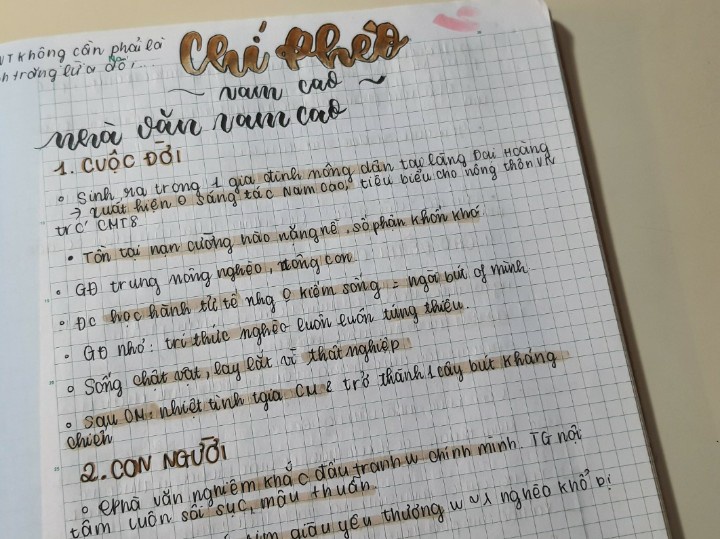 VT không cần phải là
h trăng lừa dối...
Chí Phèo
~ Nam Cao ~
Nhà văn Nam Cao
1. CUỘC ĐỜI
• Sinh ra trong 1 gia đình nông dân tại làng Đại Hoàng
→ xuất hiện ở sáng tác Nam Cao, tiêu biểu cho nông thôn VN
trc CMT8
• Tồn tại nạn cường hào nặng nề, số phận khốn khó
• GĐ trung nông nghèo, đông con
• Đc học hành tử tế nhg 0 kiếm sống = ngòi bút of mình
• GĐ nhỏ: trí thức nghèo luôn luôn túng thiếu.
• Sống chật vật, lay lắt vì thất nghiệp
• Sau CM: nhiệt tình tgia CM & trở thành 1 cây bút kháng
chiến
2. CON NGƯỜI
• Nhà văn nghiêm khắc đấu tranh w chính mình. TG nội
tâm luôn sôi sục, mâu thuẫn.
tim giàu yêu thương w ~ ng nghèo khổ bị